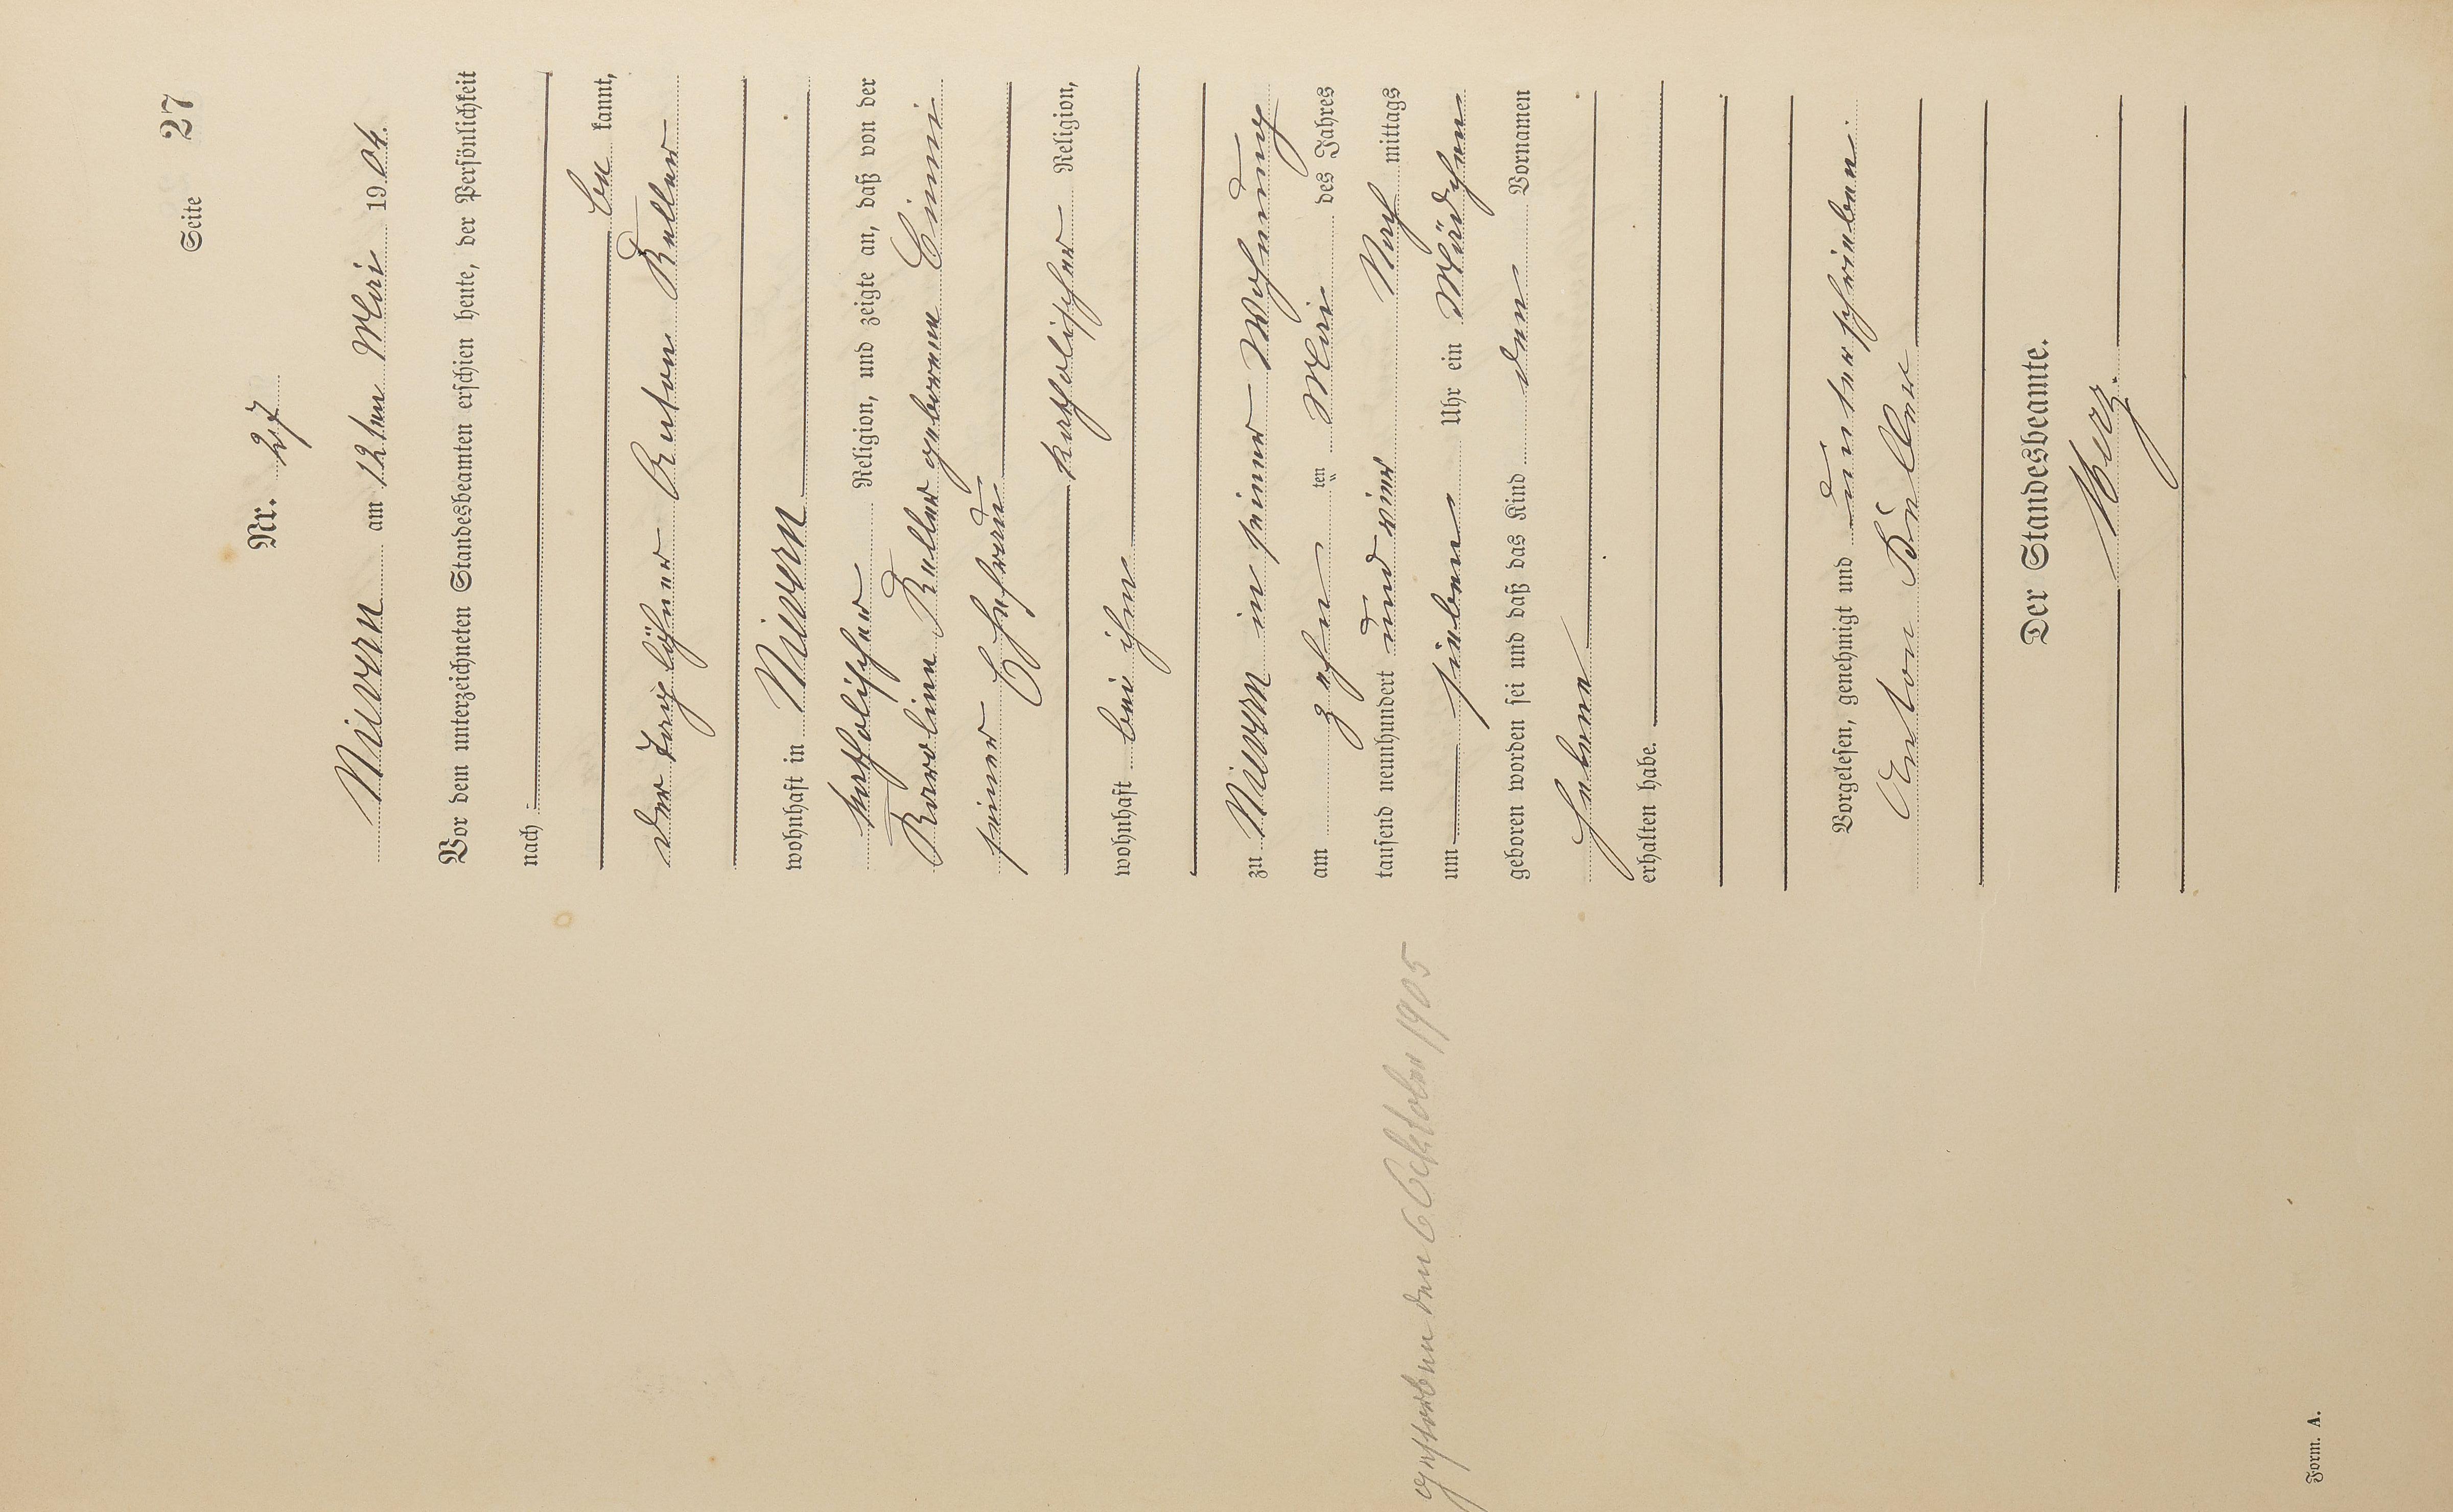 Seite 27
Nr. 27
Nievern am 12ten Mai 1904.
Vor dem unterzeichneten Standesbeamten erschien heute, der Persönlichkeit
nach
be kannt,
der Taglöhner Anton Keller
wohnhaft in Nievern
katholischer Religion, und zeigte an, daß von der
Karoline Keller geborene
seiner Ehefrau
katholischer Religion,
wohnhaft bei ihm
zu Nievern in seiner Wohnung
am zehn ten Mai des Jahres
tausend neunhundert und vier Nach mittags
um sieben Uhr ein Mädchen
geboren worden sei und daß das Kind den Vornamen
Helene
erhalten habe.
Vorgelesen, genehmigt und unterschrieben.
Anton Keller
Der Standesbeamte.
gestorben den 6 Oktober 1905
Form. A.